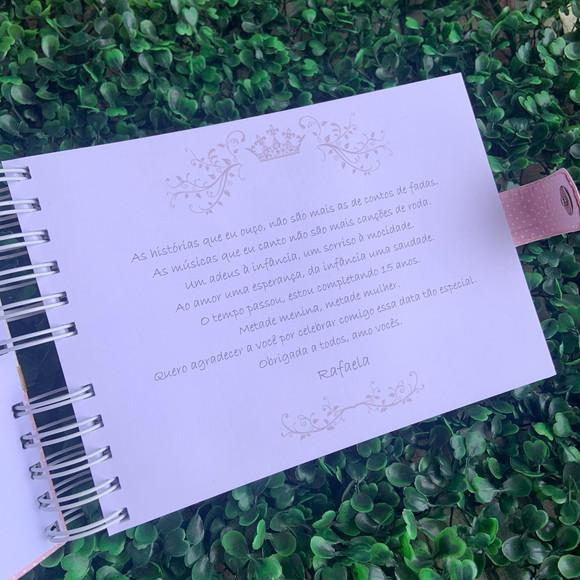 As histórias que eu ouço, não são mais as de contos de fadas.
As músicas que eu canto não são mais canções de roda.
Um adeus à infância, um sorriso à mocidade.
Ao amor uma esperança, da infância uma saudade.
O tempo passou, estou completando 15 anos.
Metade menina, metade mulher.
Quero agradecer a você por celebrar comigo essa data tão especial.
Obrigada a todos, amo vocês.
Rafaela